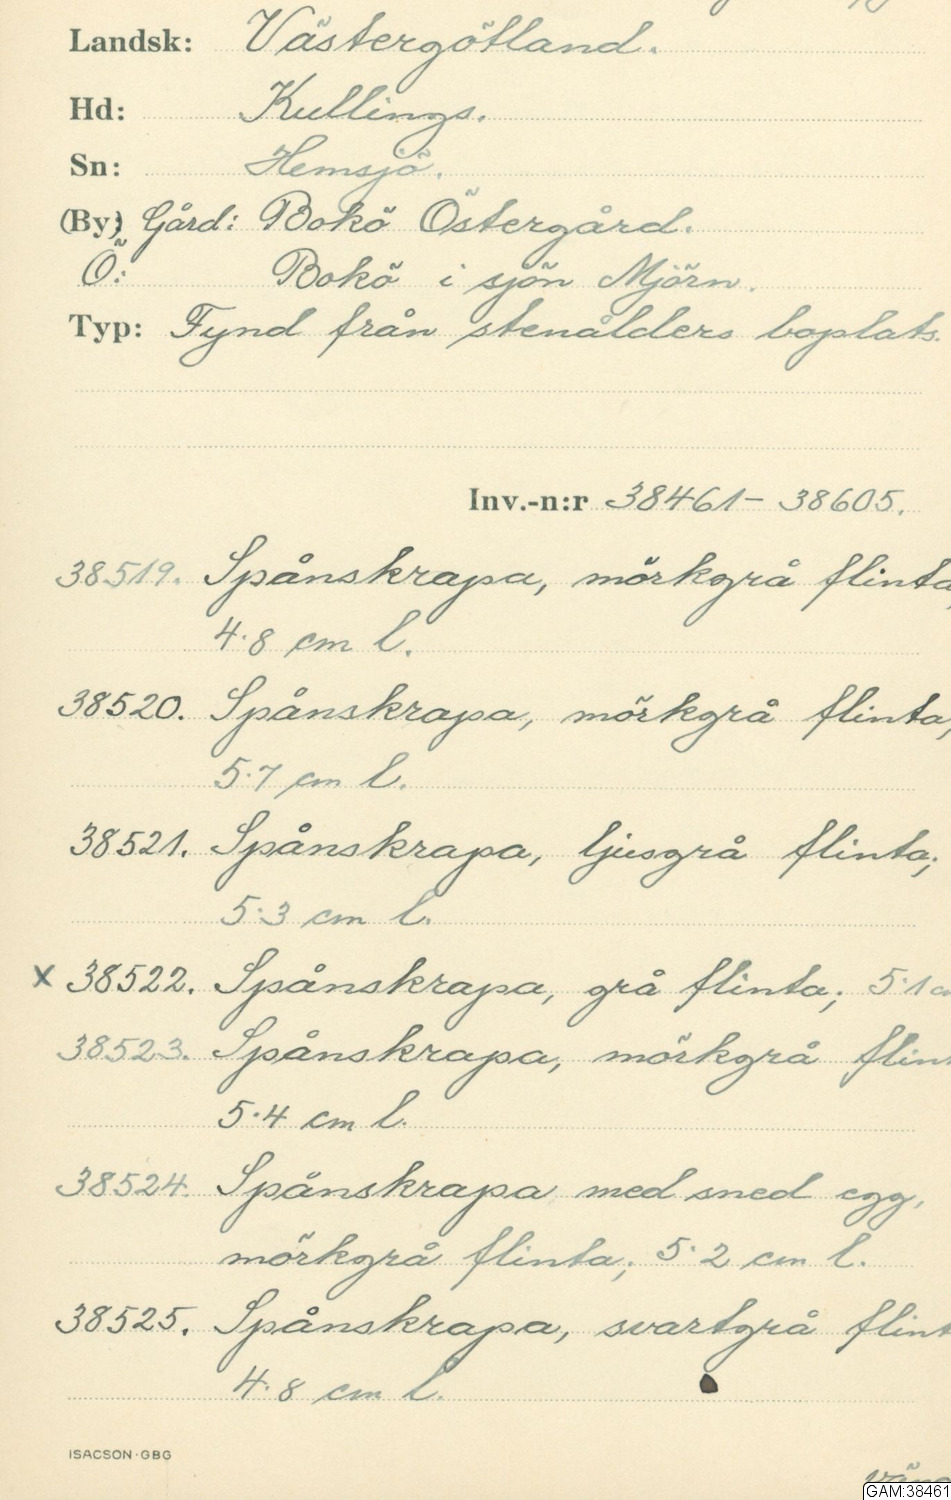 Landsk: Västergötland.
Hd: Kullings.
Sn: Hemsjö.
(By); Gård: Bokö Östergård.
Ö: Bokö i sjön Mjörn.
Typ: Fynd från stenålders boplats.
Inv.-n:r 38461– 38605.
38519. Spånskrapa, mörkgrå flinta,
4.8 cm l.
38520. Spånskrapa, mörkgrå flinta,
5.7 cm l.
38521. Spånskrapa, ljusgrå flinta;
5.3 cm l.
x 38522. Spånskrapa, grå flinta; 5.1 c
38523. Spånskrapa, mörkgrå flin
5.4 cm l.
38524. Spånskrapa med sned egg,
mörkgrå flinta; 5.2 cm l.
38525. Spånskrapa, svartgrå flint
4.8 cm l.
ISACSON·GBG
GAM:38461